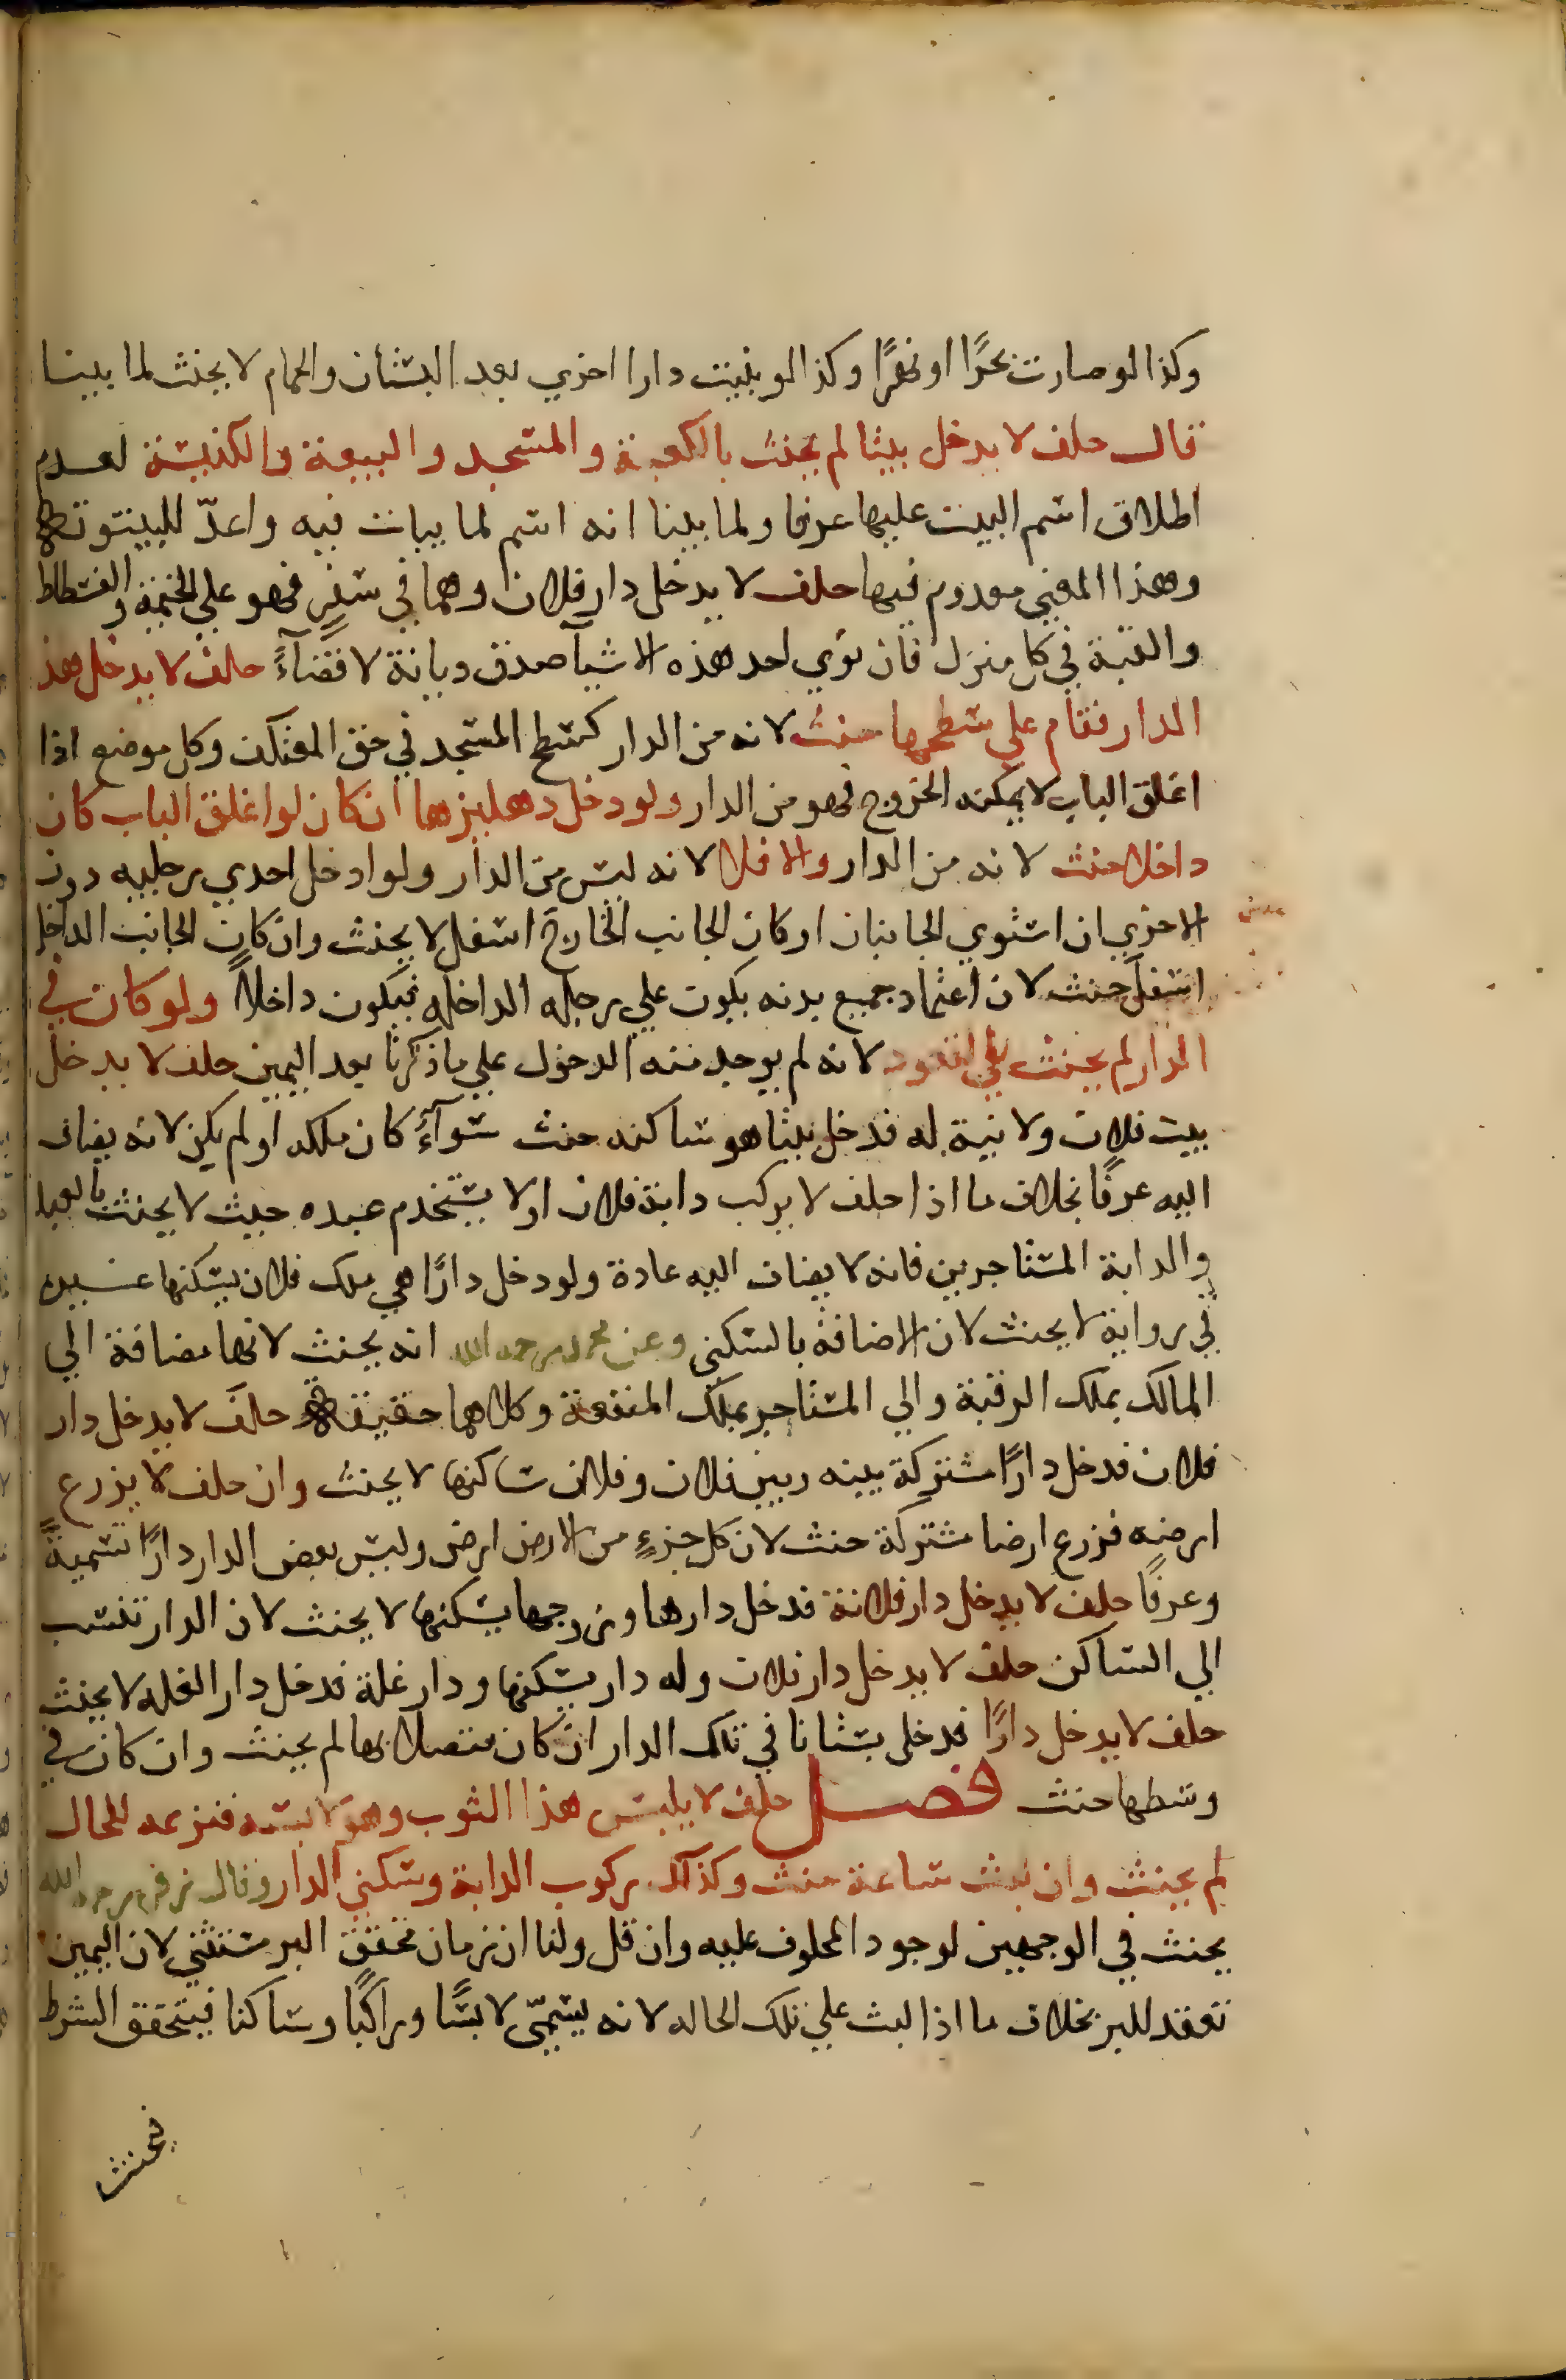 وكذا لو صارت بحرًا او نهرًا وكذا لو بنيت دارا اخري بعد البستان والحمام لا يحنث لما بينا
قال حلف لا يدخل بيتا لم يحنث بالكعبة والمسجد والبيعة والكنيسة لعدم
اطلاق اسم البيت عليها عرفا ولما بينا انه اسم لما يبات فيه واعدّ للبيتوتة
وهذا المعني معدوم فيها حلف لا يدخل دار فلان وهما في سفر فهو علي الخيمة والفسطاط
والقبة في كل منزل فان نوي احد هذه الاشيآ صدق ديانة لا قضآءً حلف لا يدخل هذه
الدار فقام علي سطحها حنث لانه من الدار كسطح المسجد في حق المعتكف وكل موضع اذا
اغلق الباب لا يمكنه الخروج فهو من الدار ولو دخل دهليزها ان كان لو اغلق الباب كان
داخلا حنث لانه من الدار والا فلا لانه ليس من الدار ولو ادخل احدي رجليه دون
الاخري ان استوي الجانبان او كان الجانب الخارج اسفل لا يحنث وان كان الجانب الداخل
اسفل حنث لان اعتماد جميع بدنه يكون علي رجله الداخله فيكون داخلاً ولو كان في
الدار لم يحنث بالقعود لانه لم يوجد منه الدخول علي ما ذكرنا بعد اليمين حلف لا يدخل
بيت فلان ولا نية له فدخل بيتا هو ساكنه حنث سوآءً كان ملكه او لم يكن لانه يضاف
اليه عرفًا بخلاف ما اذا حلف لا يركب دابة فلان او لا يستخدم عبده حيث لا يحنث بالعبد
والدابة المستاجرين فانه لا يضاف اليه عادة ولو دخل دارًا هي ملك فلان يسكنها غيره
في رواية لا يحنث لان الاضافة بالسكني وعن محمد رحمه الله انه يحنث لانها مضافة الي
المالك بملك الرقبة والي المستاجر بملك المنفعة وكلاهما حقيقة حلف لا يدخل دار
فلان فدخل دارًا مشتركة بينه وبين فلان وفلان ساكنها لا يحنث وان حلف لا يزرع
ارضه فزرع ارضا مشتركة حنث لان كل جزءٍ من الارض ارض وليس بعض الدار دارًا تسميةً
وعرفًا حلف لا يدخل دار فلانة فدخل دارها وزوجها يسكنها لا يحنث لان الدار تنسب
الي الساكن حلف لا يدخل دار فلان وله دار يسكنها ودار غلة فدخل دار الغله لا يحنث
حلف لا يدخل دارًا فدخل بستانا في تلك الدار ان كان متصلا بها لم يحنث وان كان في
وسطها حنث فصل حلف لا يلبس هذا الثوب وهو لابسه فنزعه للحال
لم يحنث وان لبث ساعة حنث وكذلك ركوب الدابة وسكني الدار وقال زفر رحمه الله
يحنث في الوجهين لوجود المحلوف عليه وان قل ولنا ان زمان تحقق البر مستثني لان اليمين
تعقد للبر بخلاف ما اذا لبث علي تلك الحاله لانه يسمّي لابسًا وراكبًا وساكنا فيتحقق الشرط
فيحنث